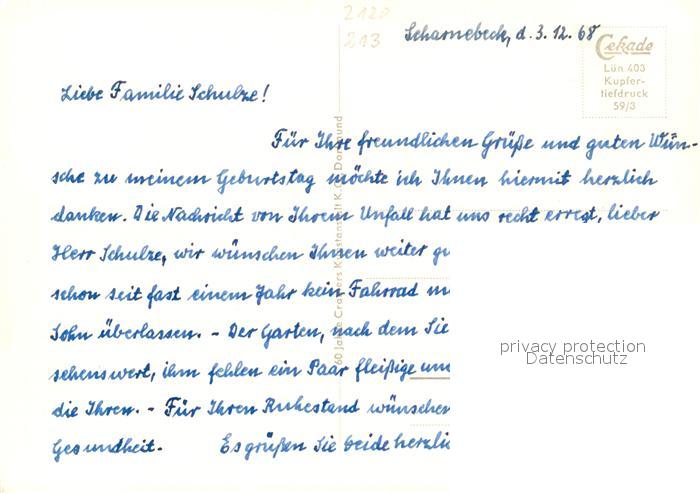 2120
213
Scharnebeck, d. 3.12.68
Cekade
Lün 403
Kupfer-
tiefdruck
59/3
Liebe Familie Schulze!
Für Ihre freundlichen Grüße und guten Wün-
sche zu meinem Geburtstag möchte ich Ihnen hiermit herzlich
danken. Die Nachricht von Ihrem Unfall hat uns recht erregt, lieber
Herr Schulze, wir wünschen Ihnen weiter gu
schon seit fast einem Jahr kein Fahrrad m
Sohn überlassen. - Der Garten, nach dem Sie
sehenswert, ihm fehlen ein Paar fleißige um
die Ihren. - Für Ihren Ruhestand wünschen
Gesundheit. Es grüßen Sie beide herzlic
60 Jahre Cramers Kunstanstalt K.G. Dortmund
privacy protection
Datenschutz